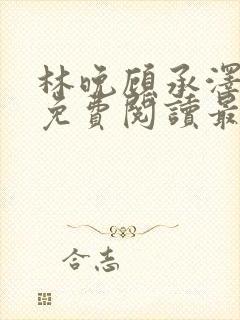 林晚顾承澤
免費閱讀最
合志